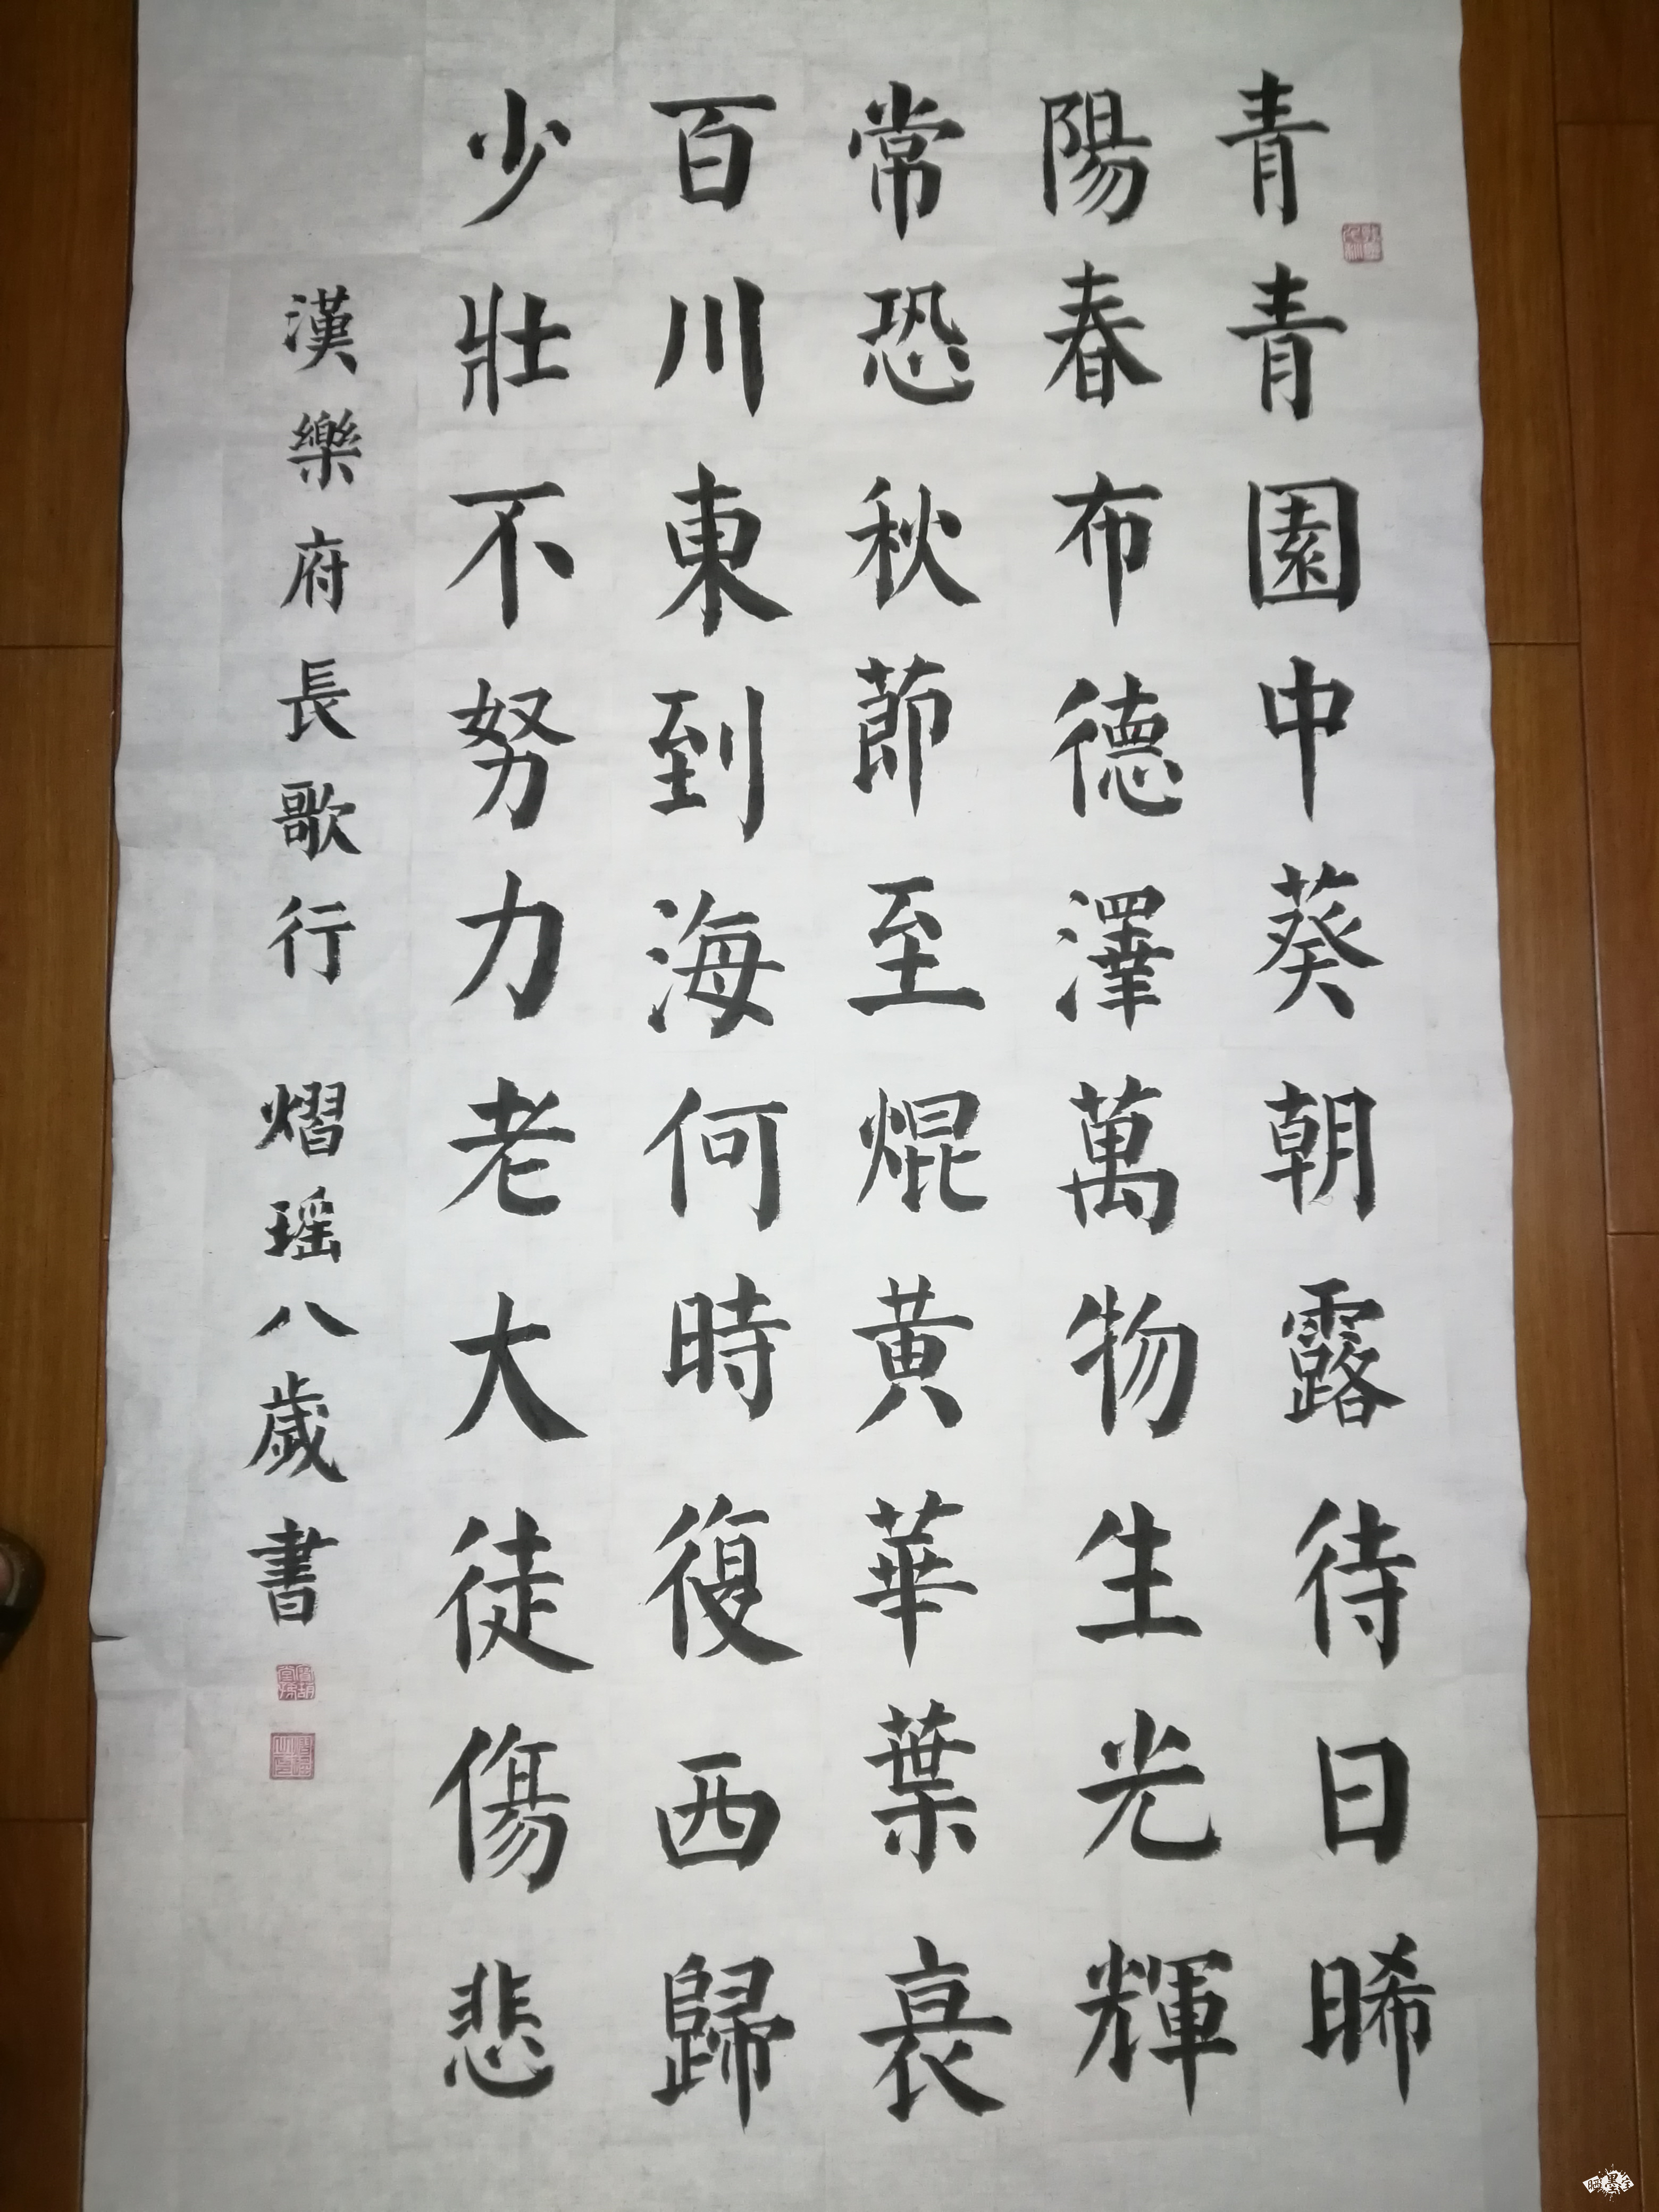 青青園中葵朝露待日晞
陽春布德澤萬物生光輝
常恐秋節至焜黄華葉衰
百川東到海何時復西歸
少壯不努力老大徒傷悲
漢樂府長歌行 熠瑶八歲書